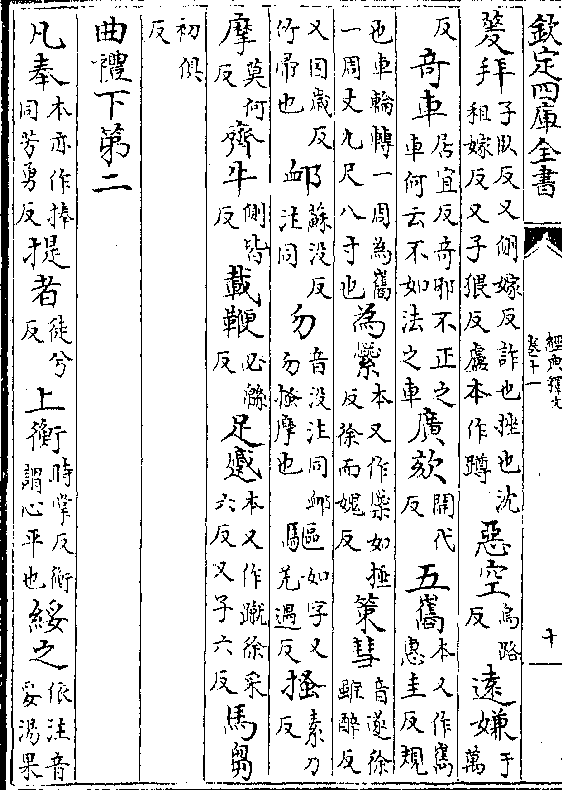 欽定四庫全書
經典釋文
卷十一
十
蓌拜子臥反又側嫁反詐也挫也沈租嫁反又子猥反盧本作蹲惡空烏路反遠嫌于萬
反奇車居宜反奇邪不正之車何云不如法之車廣欬開代反五巂本又作巂惠圭反規
也車輪轉一周為巂一周丈九尺八寸也為縈本又作縈如捶反徐而媿反策彗音遂徐雖醉反
又囙歲反竹帚也䘏蘇沒反注同勿音沒注同䘏勿搔摩也驅如字又羌遇反搔素刀反
摩莫何反齊牛側皆反載鞭必緜反足蹙本又作蹴徐采六反又子六反馬芻
初俱反
曲禮下第二
凡奉本亦作捧同芳勇反提者徒兮反上衡時掌反衡謂心平也綏之依注音妥湯果